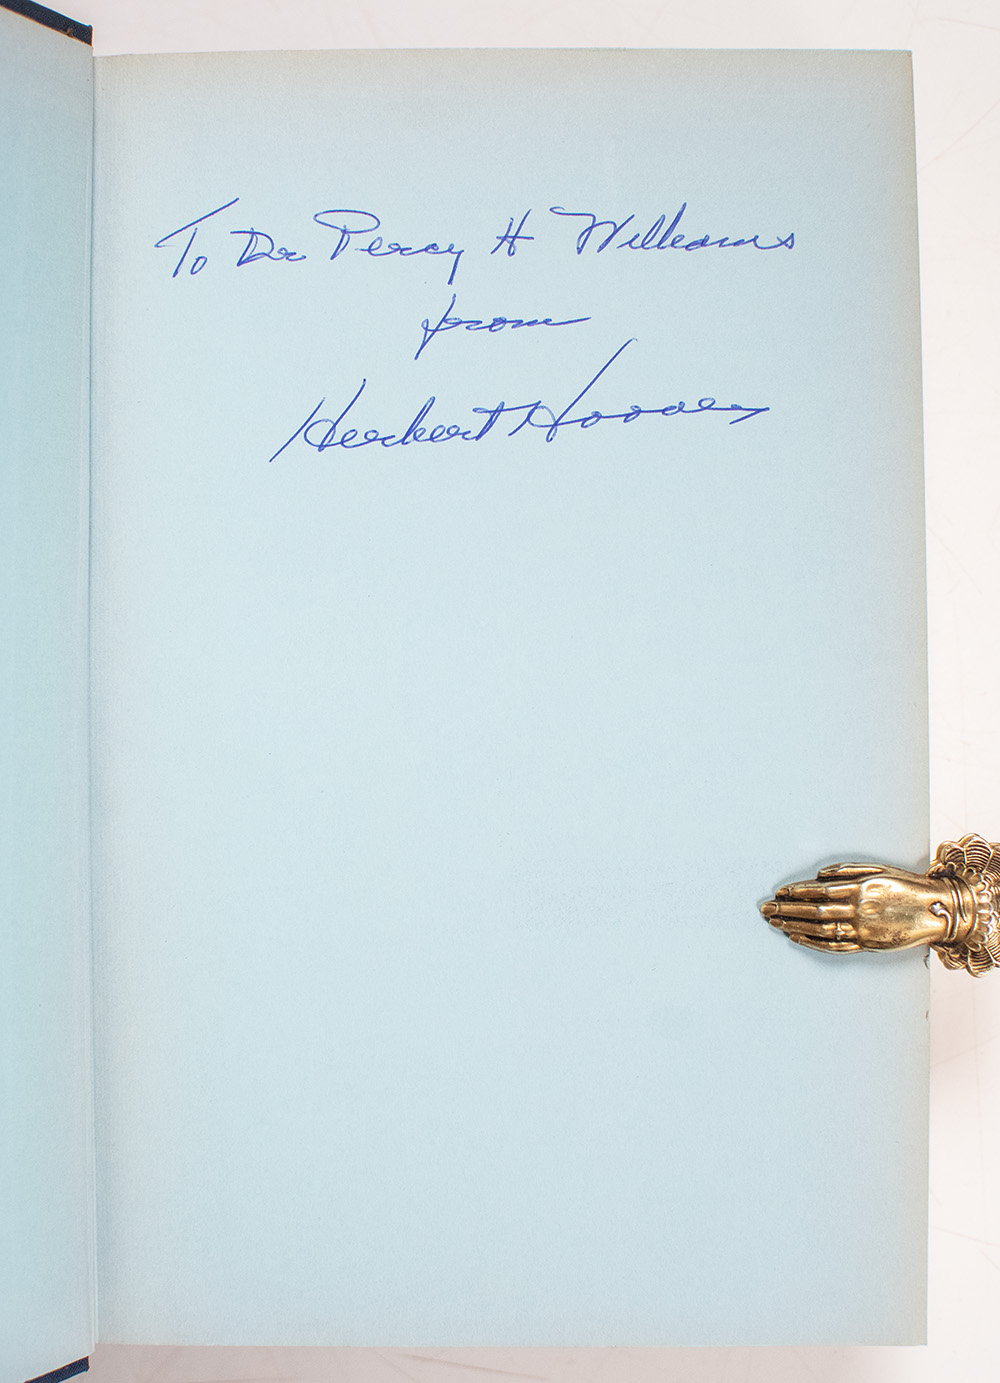 To Dr Percy H Williams
from
Herbert Hoover